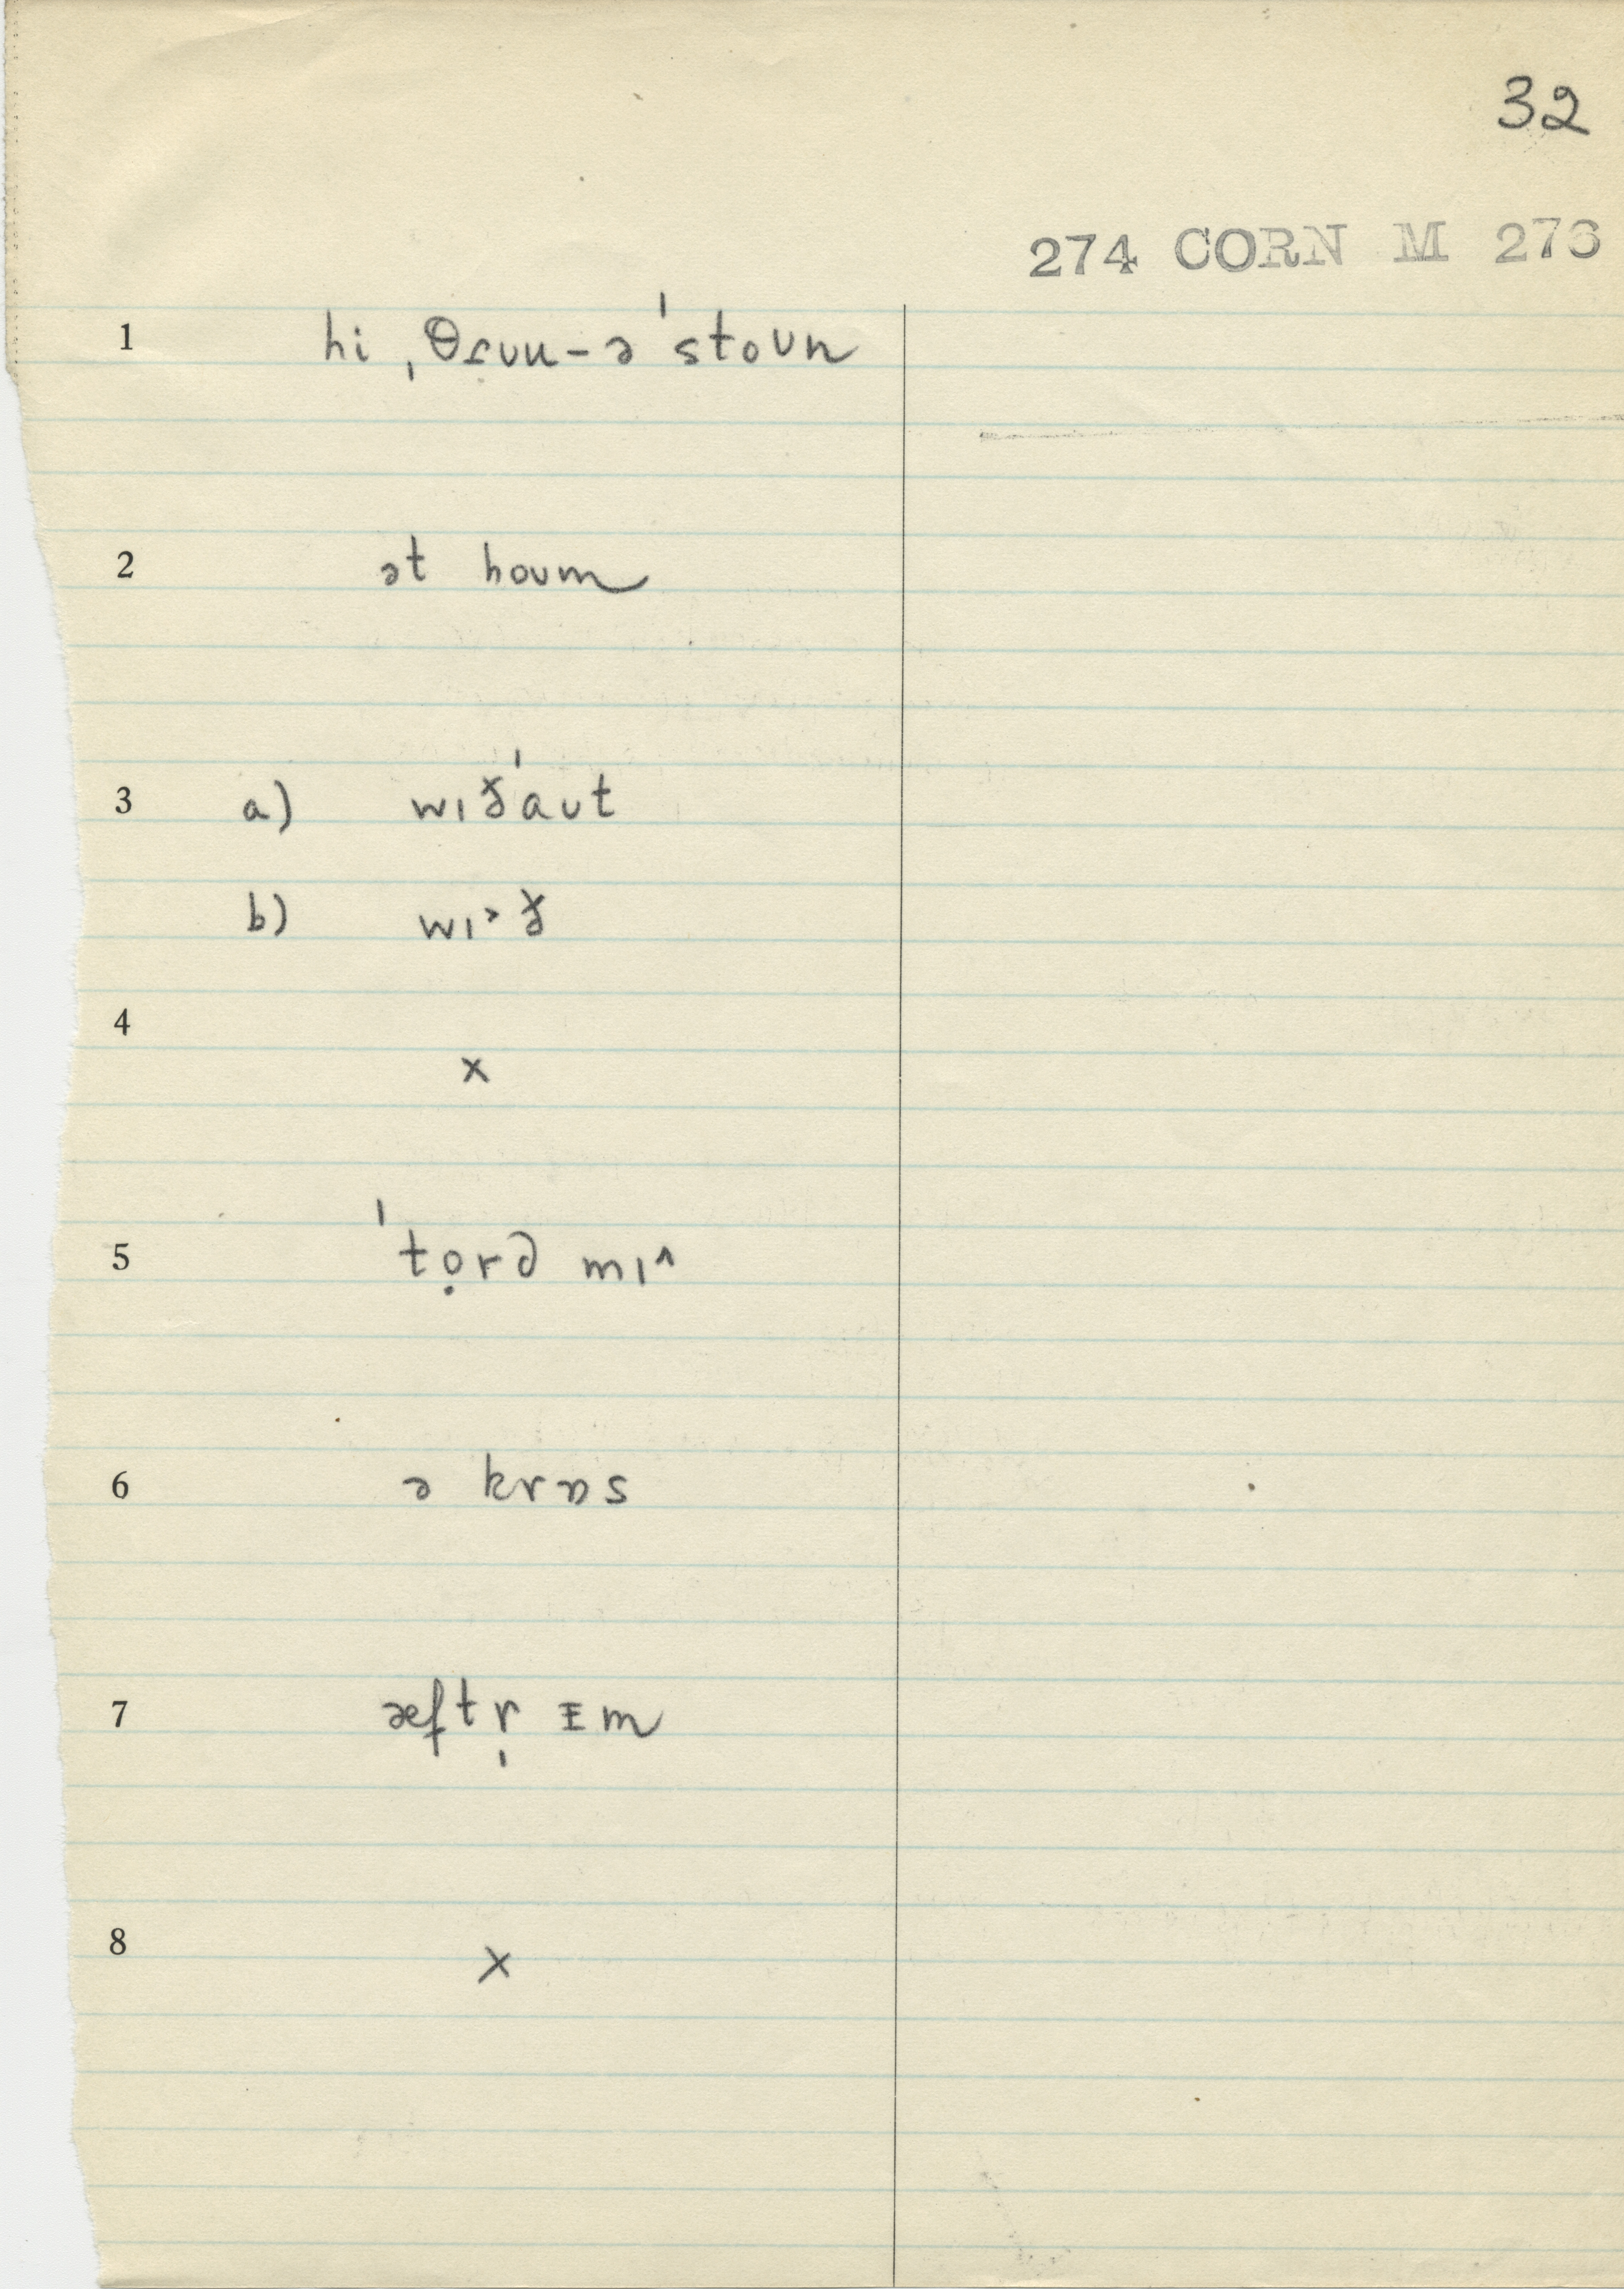 32
274 CORN M 276
1 hi ˌθɾʊu-ə ˈstoʊn
2 ət hoʊm
3 a) wɪðˈaʊt
b) wɪ˃ð
4 x
5 ˈtọrd mɪ^
6 ə krɒs
7 æftr̩ ᵻm
8 x